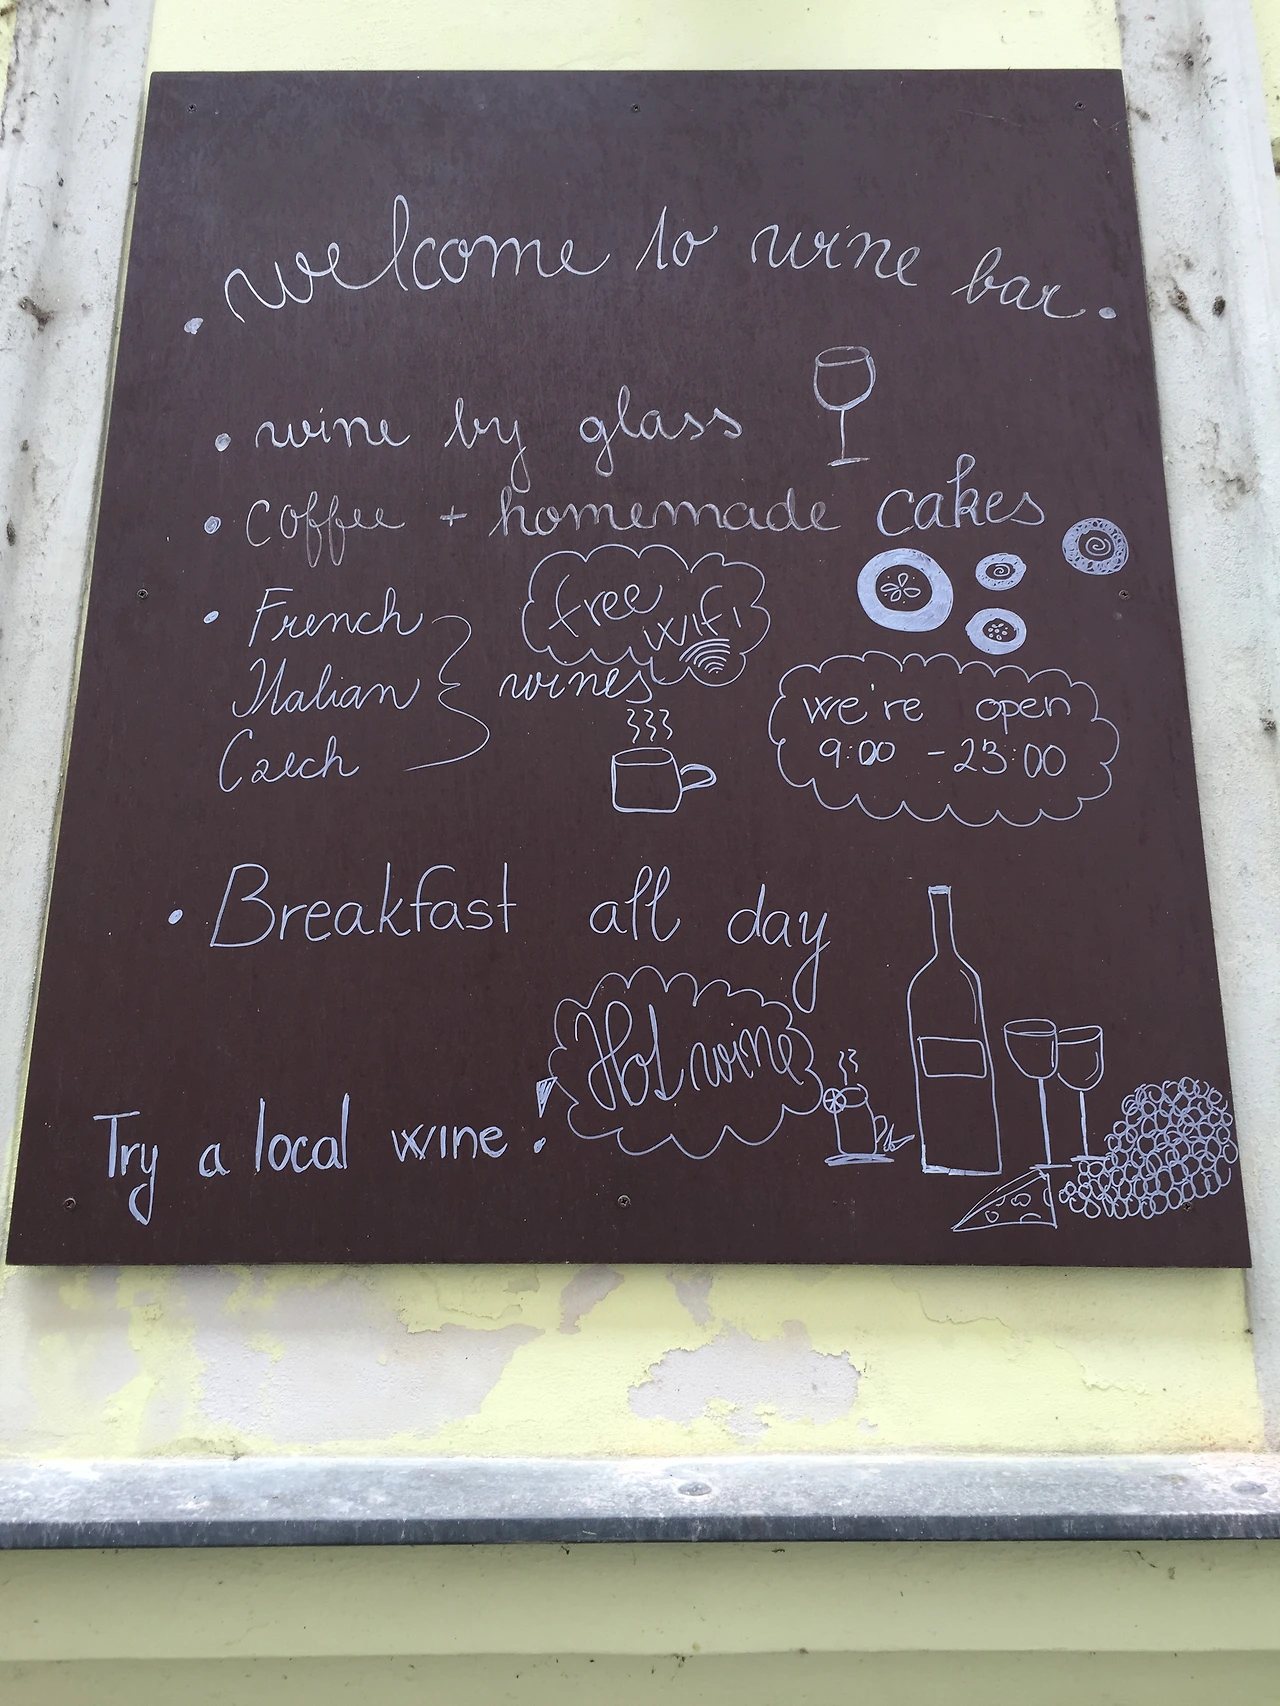 • welcome to wine bar •
• wine by glass
• coffee + homemade cakes
free
wifi
• French
Italian
Czech
wines
we're open
9:00 - 23:00
• Breakfast all day
Hot wine
Try a local wine!